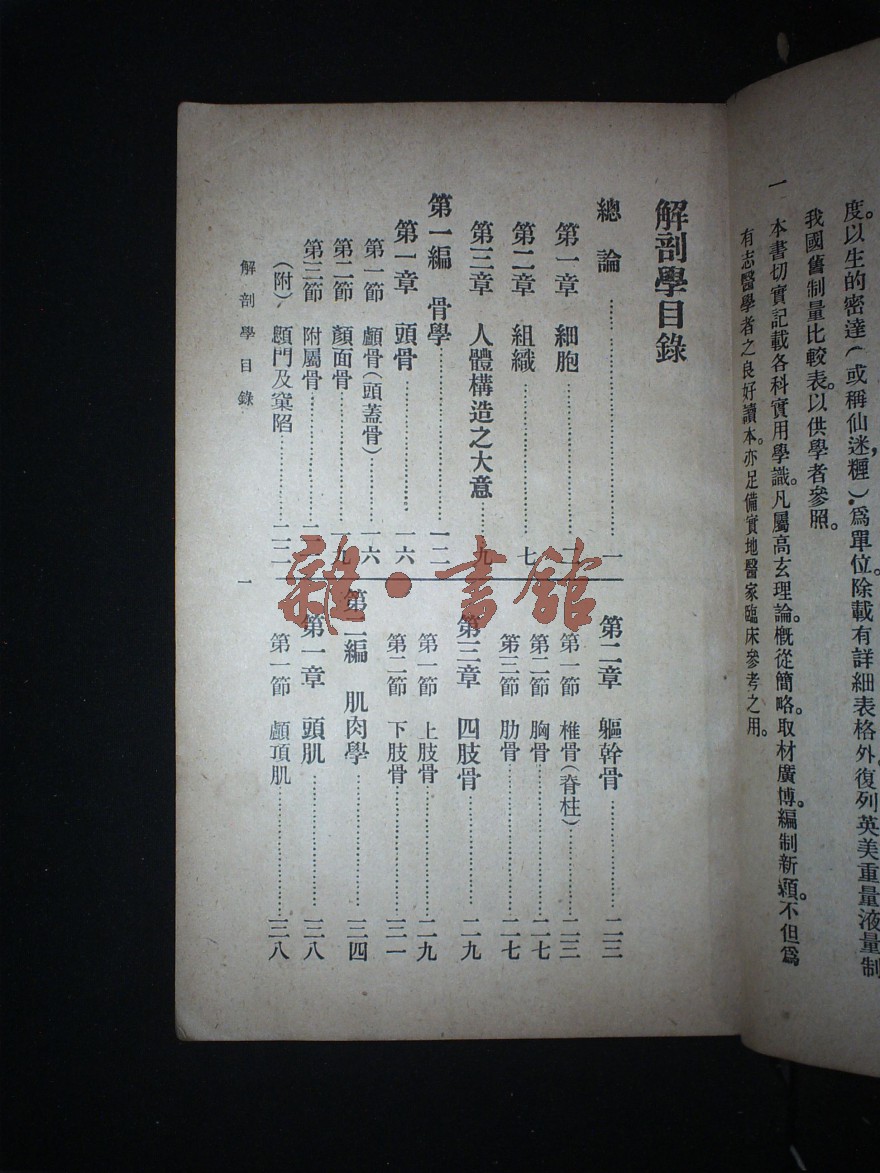 度。以生的密達（或稱仙迷糎）爲單位。除載有詳細表格外。復列英美重量液量制
我國舊制量比較表。以供學者參照。
一　本書切實記載各科實用學識。凡屬高玄理論。槪從簡略。取材廣博。編制新穎。不但爲
有志醫學者之良好讀本。亦足備實地醫家臨床參考之用。
解剖學目錄
總論……………一
第一章　細胞……………
第二章　組織……………七
第三章　人體構造之大意……九
第一編　骨學……………一二
第一章　頭骨……………一六
第一節　顱骨（頭蓋骨）……一六
第二節　顏面骨……………九
第三節　附屬骨……………
（附）　顖門及窠陷……………二二
第二章　軀幹骨……………二三
第一節　椎骨（脊柱）……………二三
第二節　胸骨……………二七
第三節　肋骨……………二七
第三章　四肢骨……………二九
第一節　上肢骨……………二九
第二節　下肢骨……………三一
第二編　肌肉學……………三四
第一章　頭肌……………三八
第一節　顱頂肌……………三八
解剖學目錄
一
雜·書館